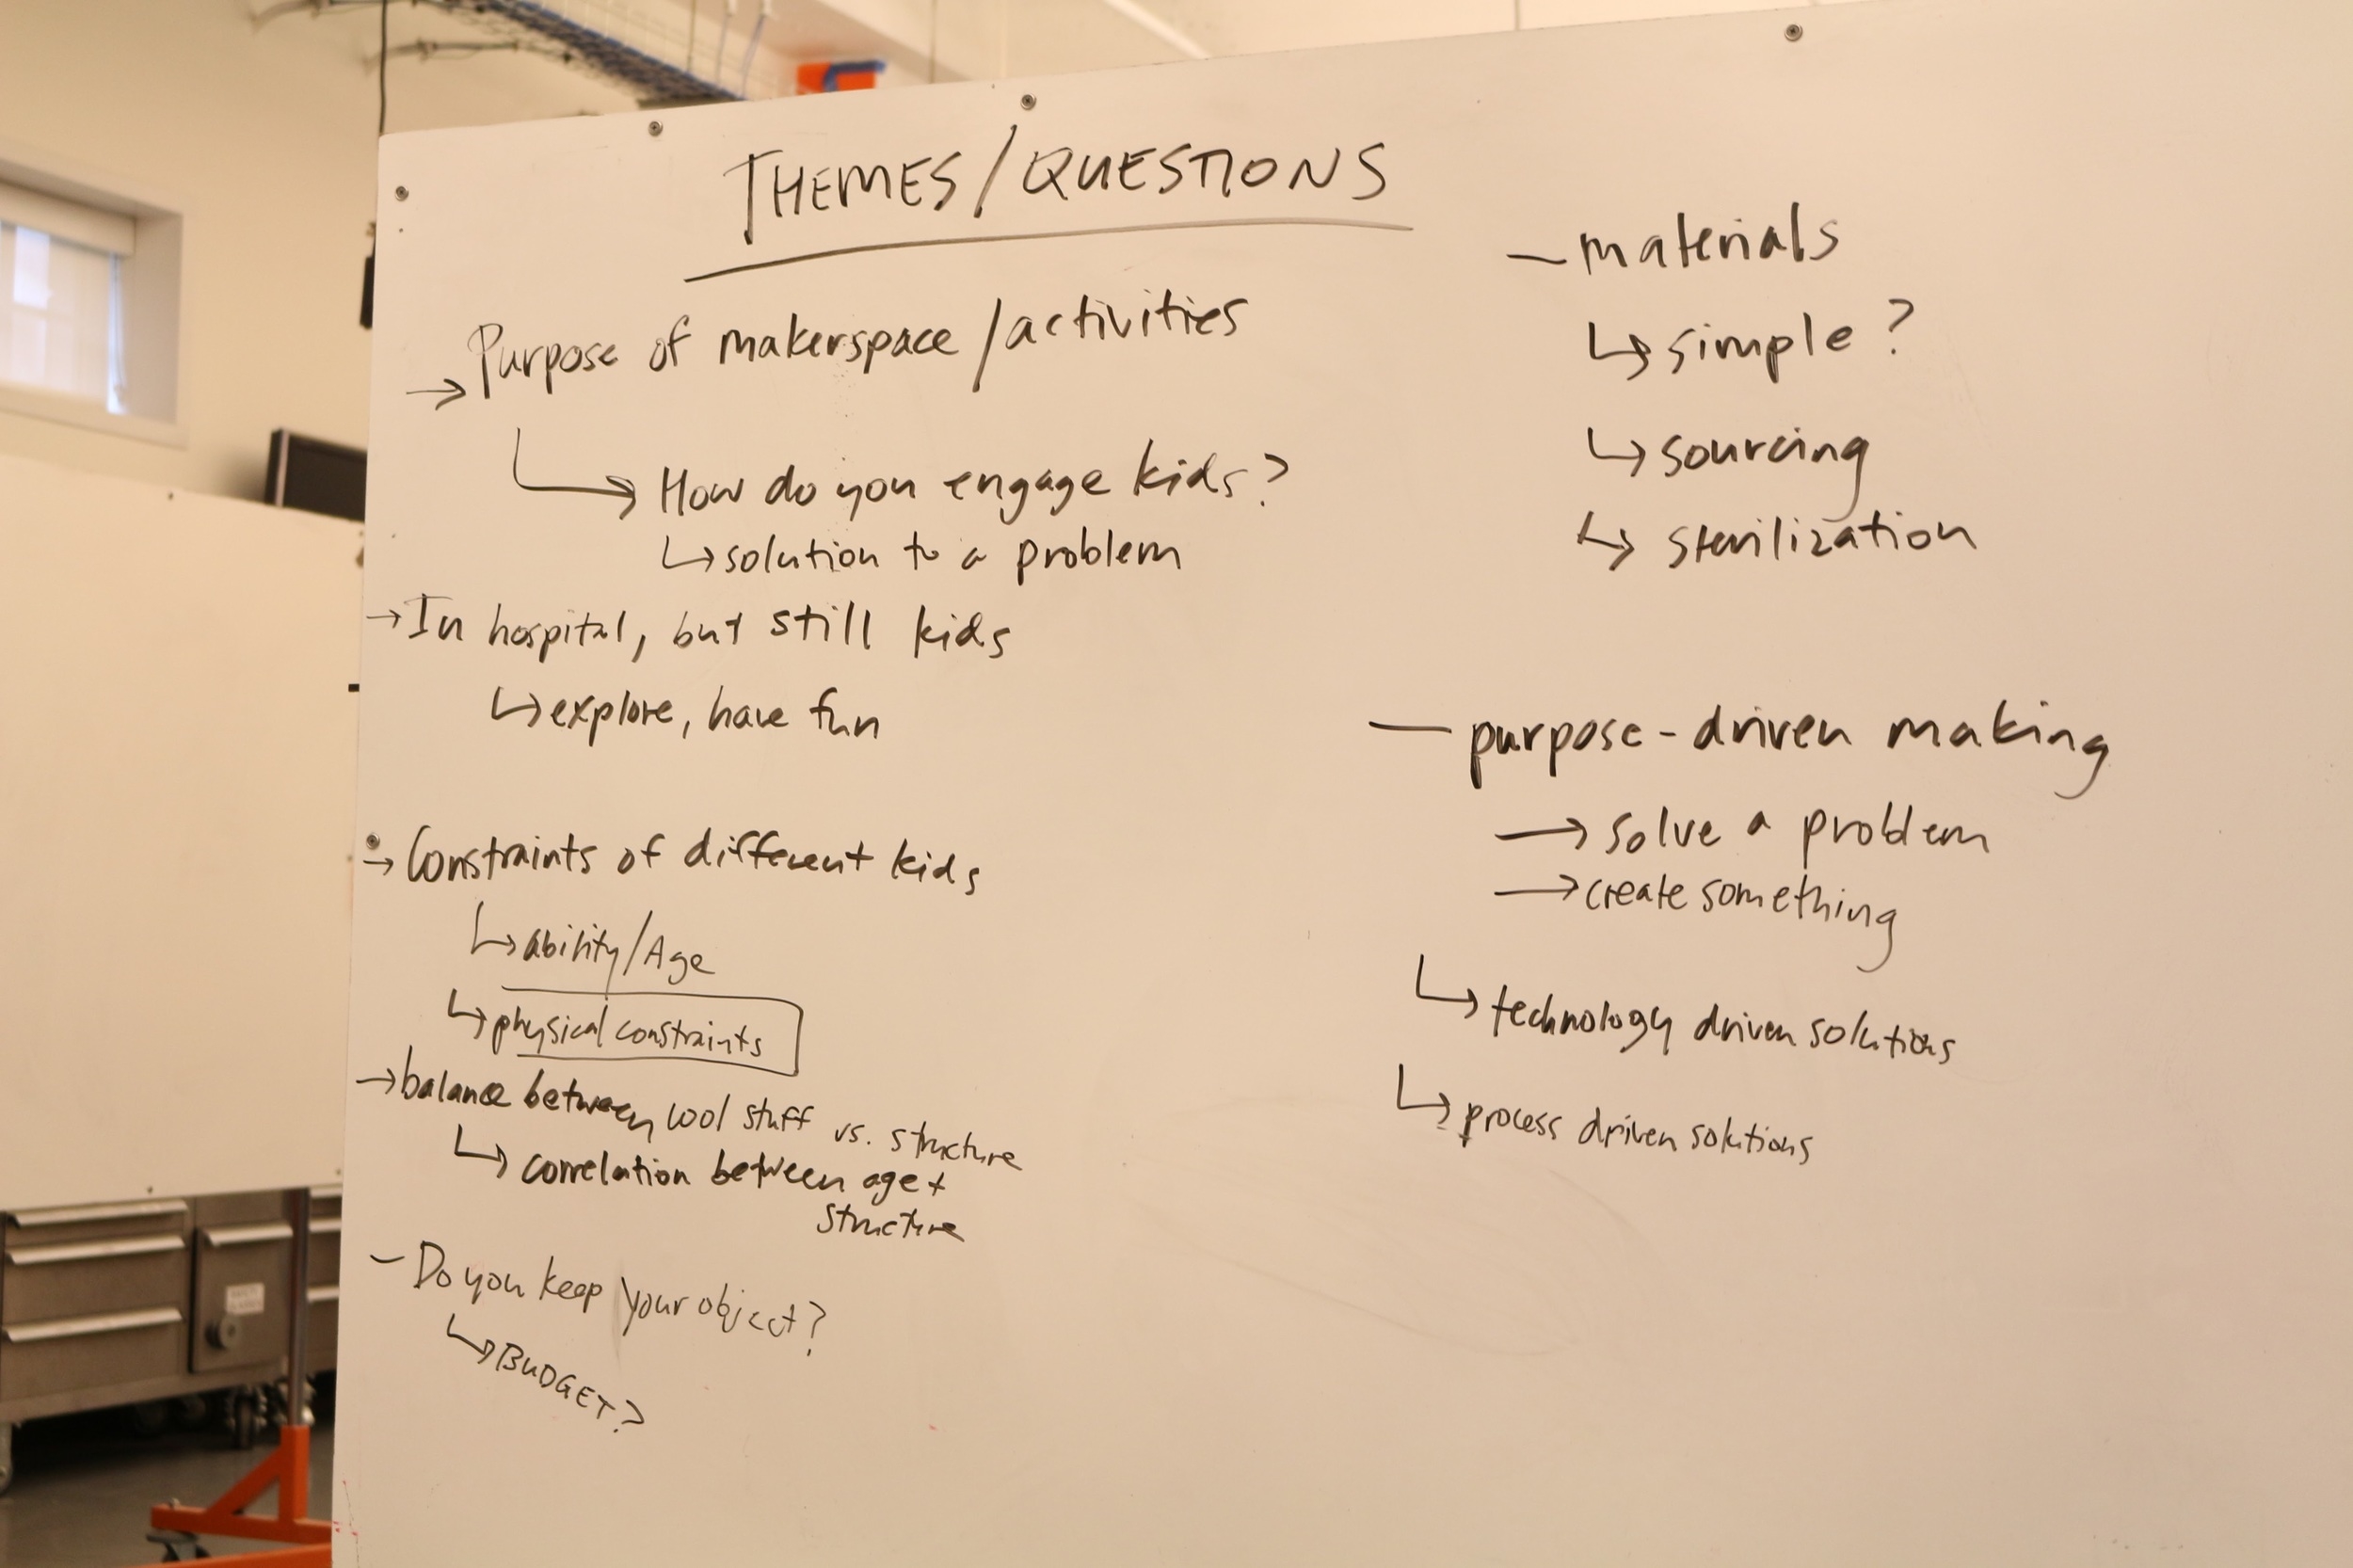 THEMES/QUESTIONS
→ Purpose of makerspace/activities
↳ How do you engage kids?
↳ solution to a problem
→ In hospital, but still kids
↳ explore, have fun
→ Constraints of different kids
↳ ability/Age
↳ physical constraints
→ balance between cool stuff vs. structure
↳ correlation between age +
structure
- Do you keep your object?
↳ BUDGET?
- materials
↳ simple?
↳ sourcing
↳ sterilization
- purpose-driven making
→ solve a problem
→ create something
↳ technology driven solutions
↳ process driven solutions